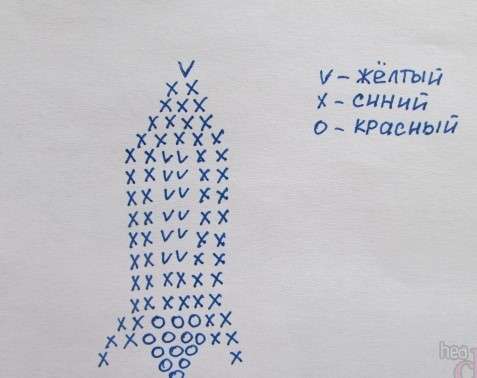 V
X X
X X X
X X X X
X X X X X
X X V V X X
X X V V X X
X X V V X X
X X V V X X
X X V V X X
X X V V X X
X X X X X X
X X X X X X
X X O O O X X
X X O O O O X X
X O O O X
O O
O
V - ЖЁЛТЫЙ
X - СИНИЙ
O - КРАСНЫЙ
hea